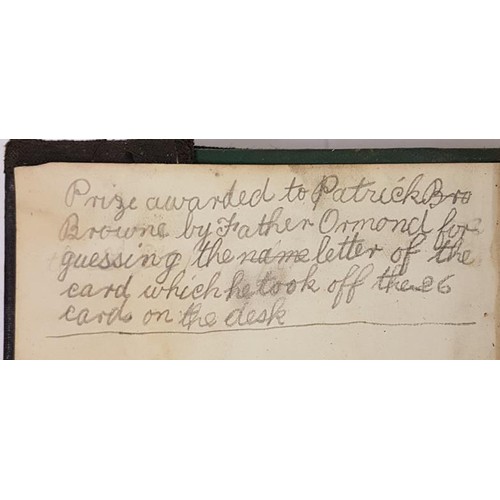 Prize awarded to Patrick Bro
Browne by Father Ormond for
guessing the name letter of the
card which he took off the 26
cards on the desk